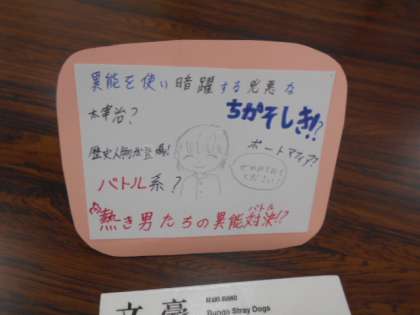 異能を使い暗躍する兇悪な
太宰治?
ちがそしき!?
歴史人物が登場!
ポートマフィア?
ぜひ
ください!
バトル系?
熱き男たちの異能対決!?
バトル
文豪
Bungo Stray Dogs